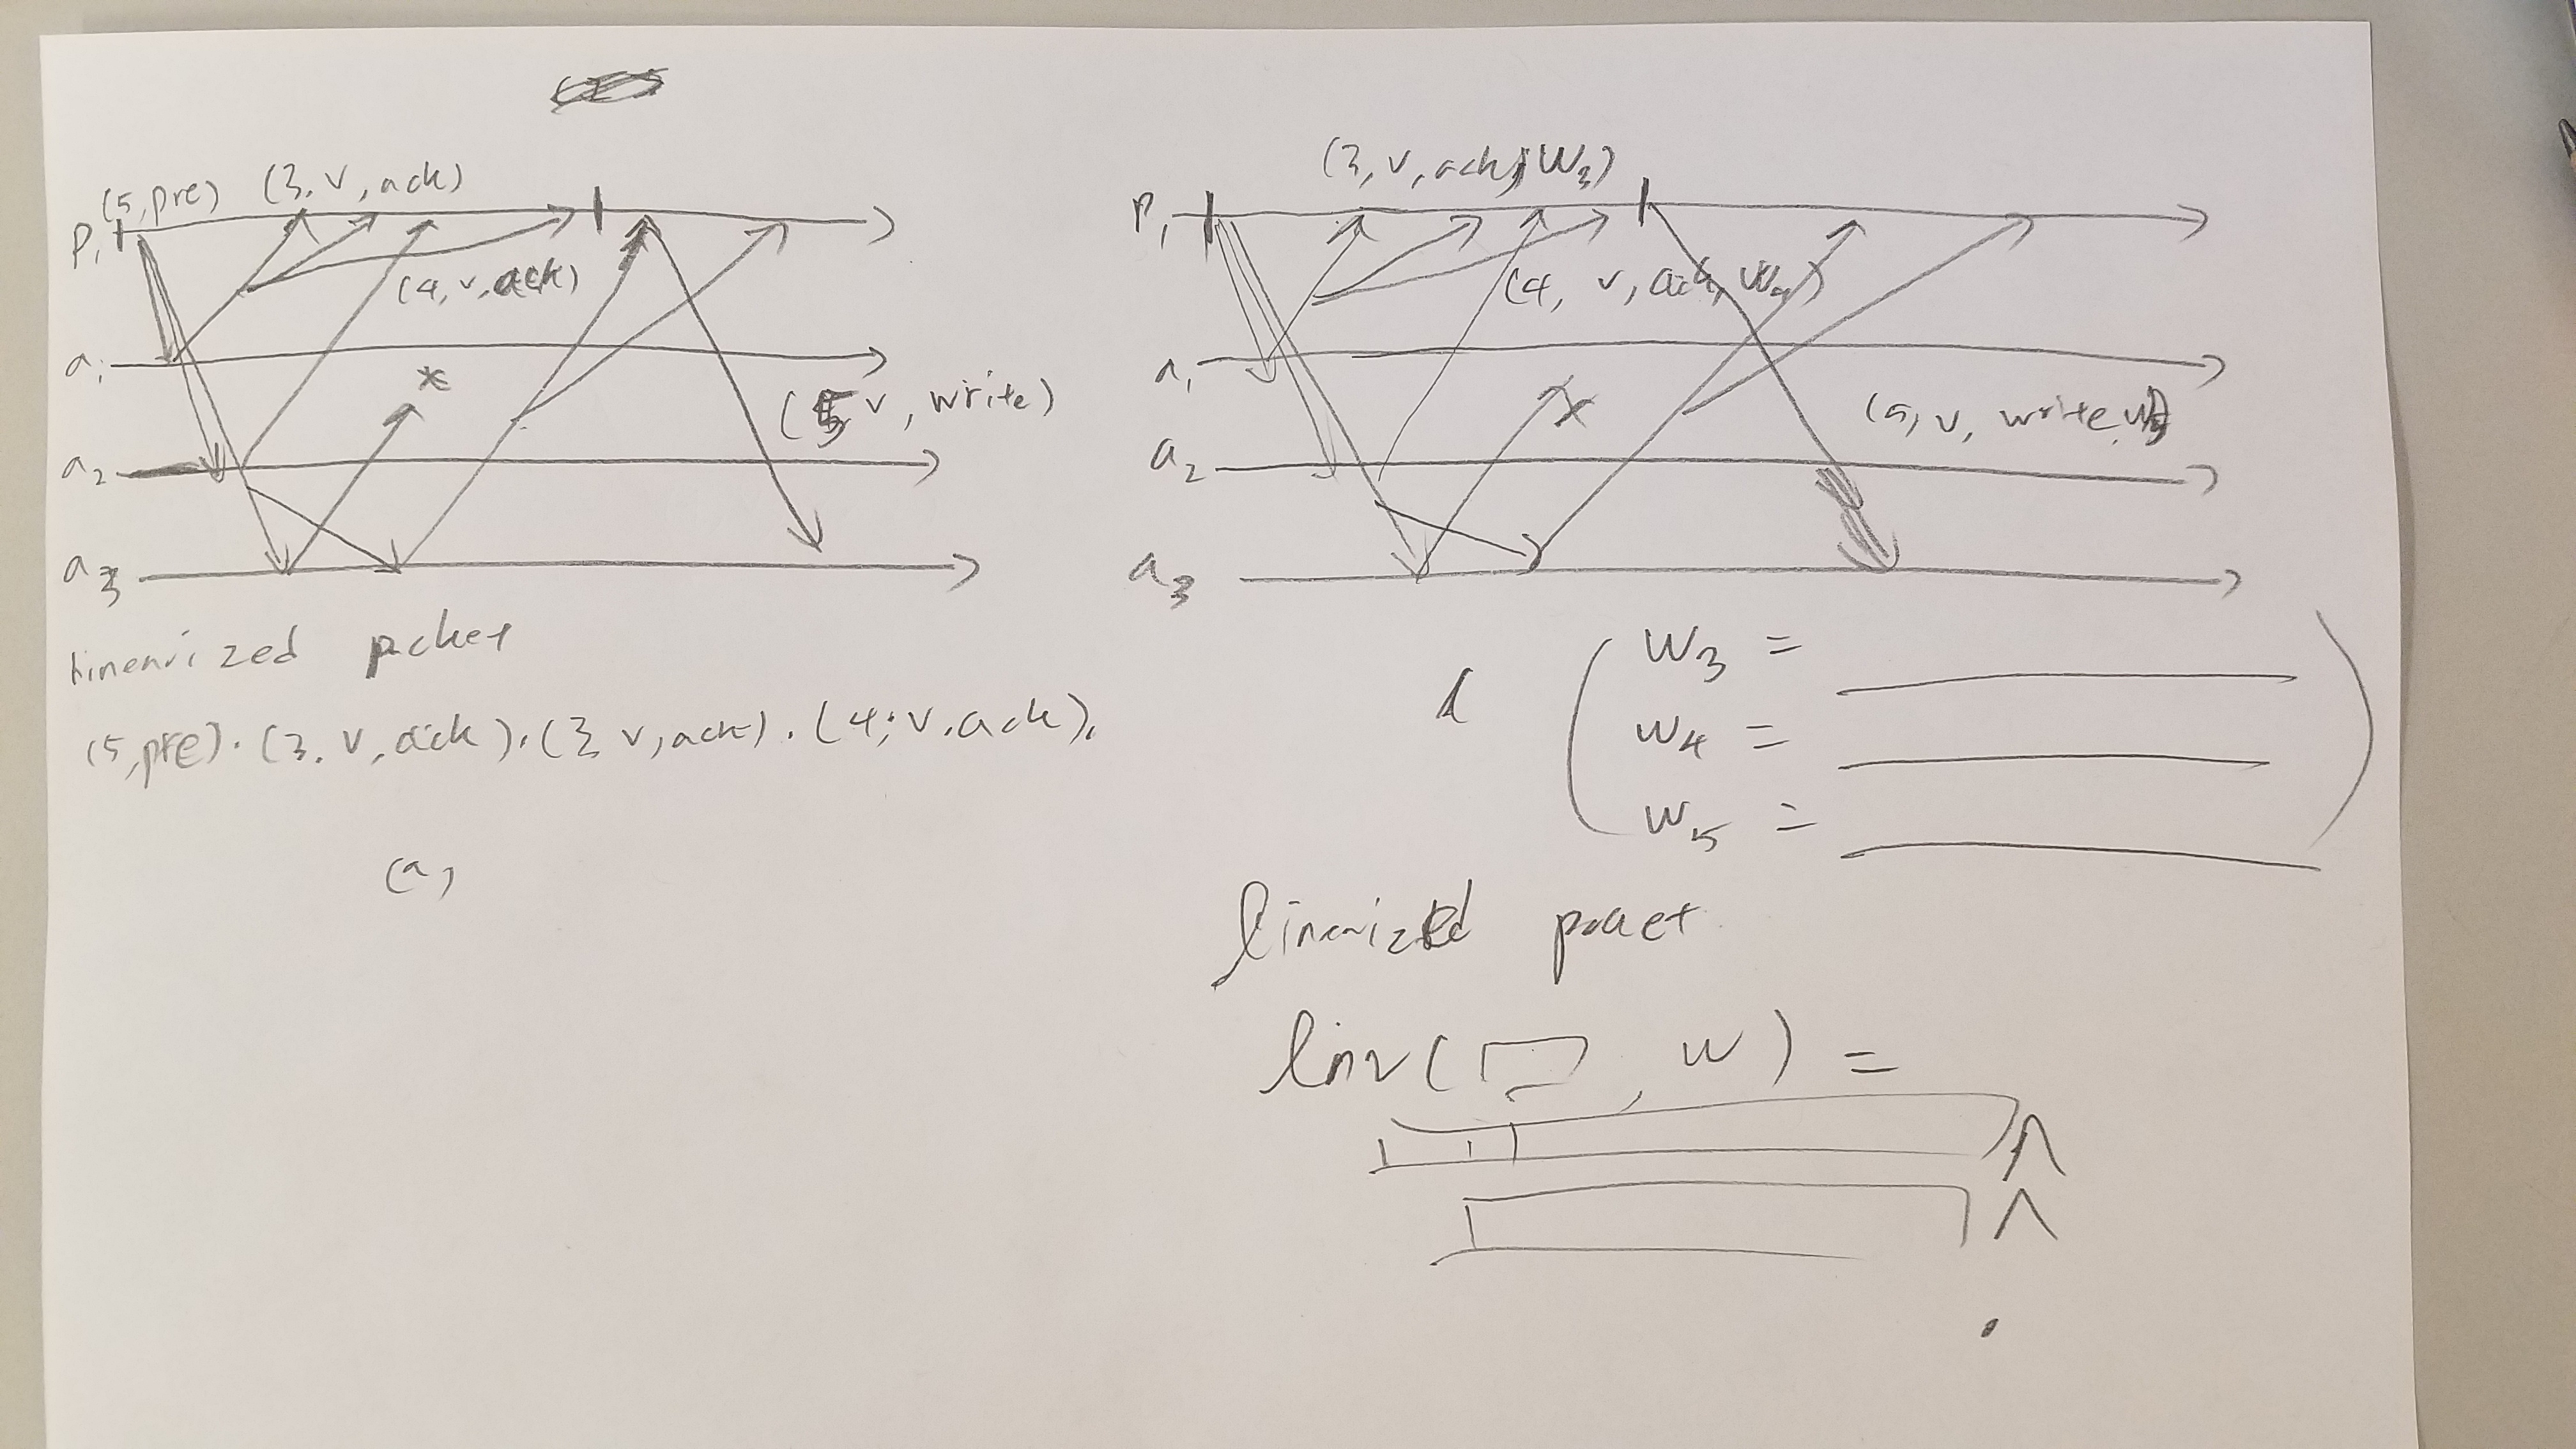 (5,pre) (3.v,ack)
P1
(4,v,ack)
a1
(5 v, write)
a2
a3
linearized pcket
(5,pre).(3.v,ack).(3 v,ack).(4,v.ack).
(a)
(3,v,ack,W3)
P1
(4, v, ack, W4)
a1
(5, v, write,
a2
a3
W3 =
W4 =
W5 =
linearized
linr( , w) =